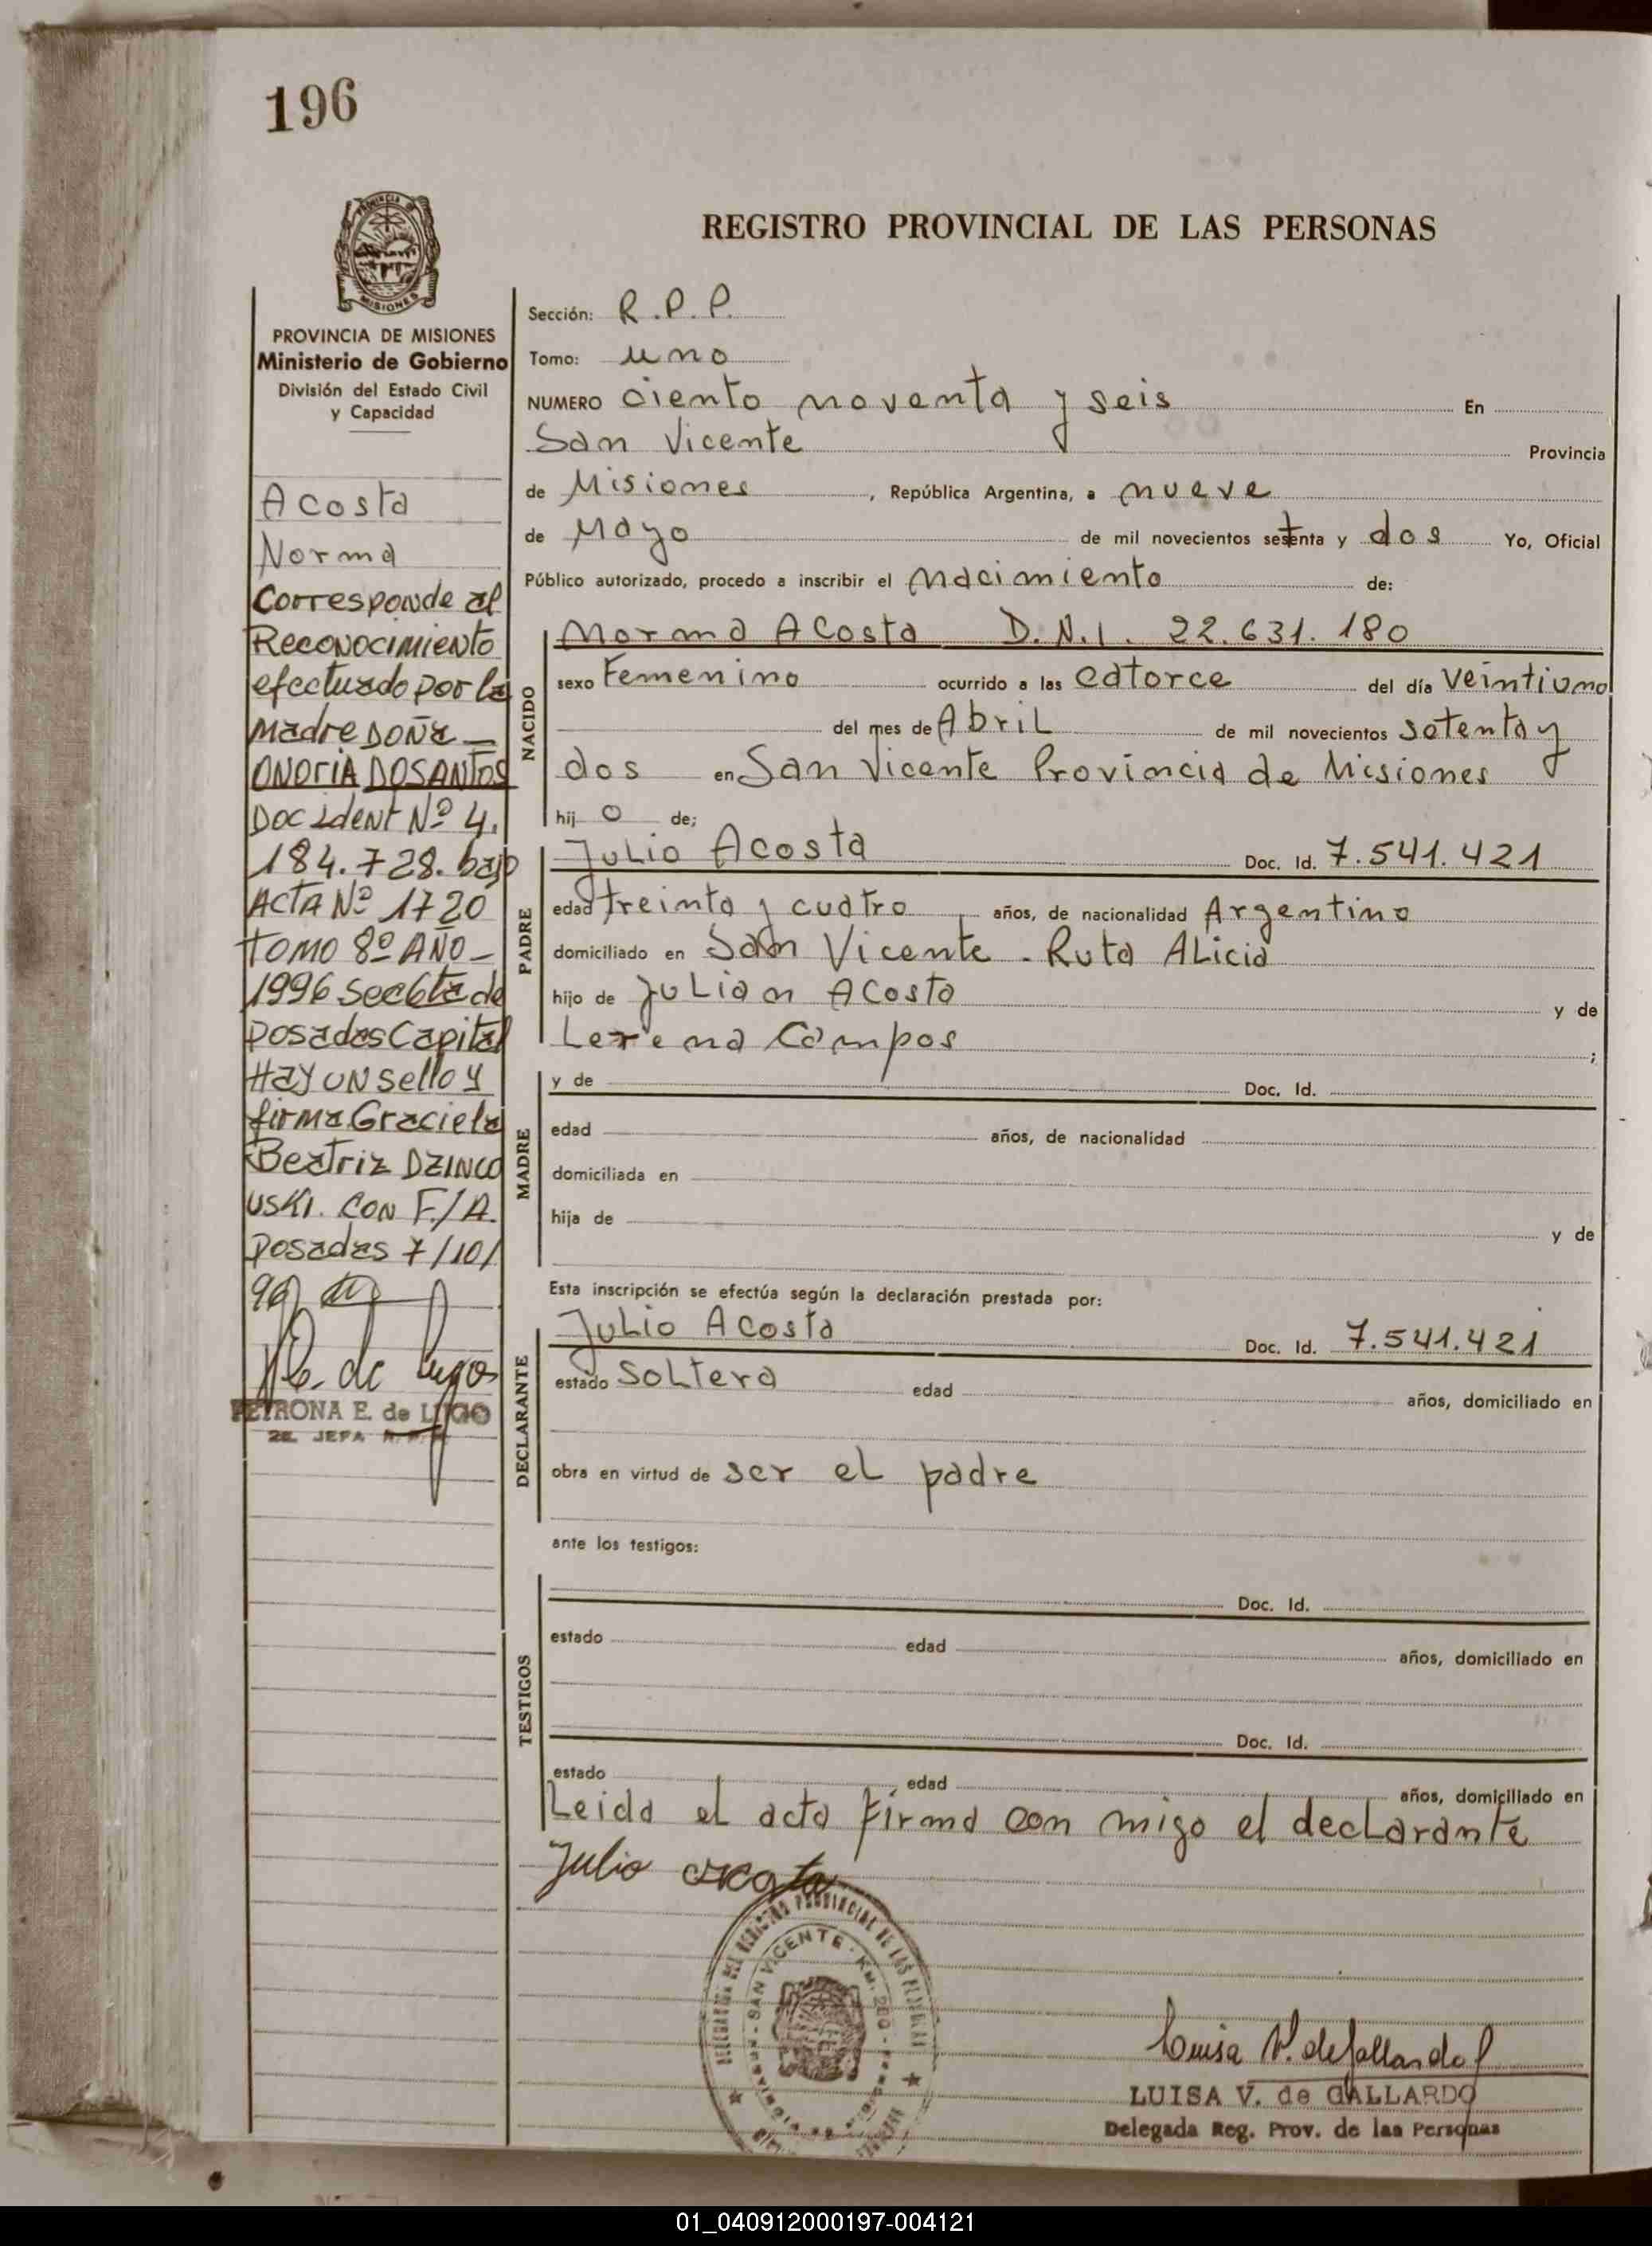 196
PROVINCIA DE MISIONES
Ministerio de Gobierno
División del Estado Civil
y Capacidad
Acosta
Norma
Corresponde al
Reconocimiento
efectuado por la
Madre DOÑA —
ONORIA DOSANTOS
Doc Ident Nº 4.
184.728. bajo
ACTA Nº 1720
TOMO 8º AÑO —
1996 Sec 6ta de
Posadas Capital
Hay un sello y
firma Graciela
Beatriz DZINCO
USKI. CON F./A.
Posadas 7/10/
96
PETRONA E. de LUGO
2a. JEFA R. P. P.
REGISTRO PROVINCIAL DE LAS PERSONAS
Sección: R.P.P.
Tomo: uno
NUMERO ciento noventa y seis En
San Vicente Provincia
de Misiones, República Argentina, a nueve
de Mayo de mil novecientos setenta y dos Yo, Oficial
Público autorizado, procedo a inscribir el nacimiento de:
NACIDO
Norma Acosta D.N.I. 22.631.180
sexo Femenino ocurrido a las catorce del día veintiuno
del mes de Abril de mil novecientos setenta y
dos en San Vicente Provincia de Misiones
hij o de;
PADRE
Julio Acosta Doc. Id. 7.541.421
edad treinta y cuatro años, de nacionalidad Argentino
domiciliado en San Vicente - Ruta Alicia
hijo de Julian Acosta y de
Lerena Campos ;
MADRE
y de Doc. Id.
edad años, de nacionalidad
domiciliada en
hija de y de
Esta inscripción se efectúa según la declaración prestada por:
DECLARANTE
Julio Acosta Doc. Id. 7.541.421
estado soltera edad años, domiciliado en
obra en virtud de ser el padre
ante los testigos:
TESTIGOS
Doc. Id.
estado edad años, domiciliado en
Doc. Id.
estado edad años, domiciliado en
Leida el acta firma con migo el declarante
Julio Acosta
SAN VICENTE - KM. 200 -
Luisa V. de Gallardo
LUISA V. de GALLARDO
Delegada Reg. Prov. de las Personas
01_040912000197-004121